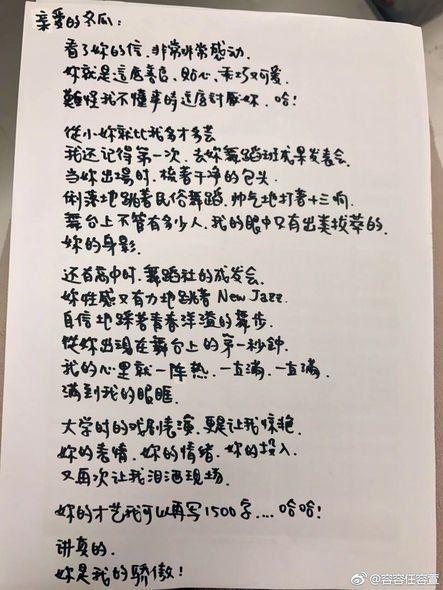 親愛的冬瓜：
看了妳的信，非常非常感动。
妳就是這麼善良、貼心、乖巧可愛。
難怪我不懂事時這麼討厭妳，哈！
從小妳就比我多才多芸
我还記得第一次，去妳舞蹈班成果发表会。
当妳出場时，梳著干净的包头
俐落地跳著民俗舞蹈，帅气地打著十三响
舞台上不管有多少人，我的眼中只有出类拔萃的
妳的身影。
还有高中时，舞蹈社的成发会。
妳性感又有力地跳著 New Jazz.
自信地踩著青春洋溢的舞步。
從妳出現在舞台上的第一秒钟，
我的心里就一阵热，一直滿，一直滿，
滿到我的眼眶。
大学时的戏剧表演，更是让我惊艳。
妳的表情，妳的情绪，妳的投入。
又再次让我泪洒现场。
妳的才艺我可以再写1500字....哈哈！
讲真的，
妳是我的骄傲！
@容容任容萱